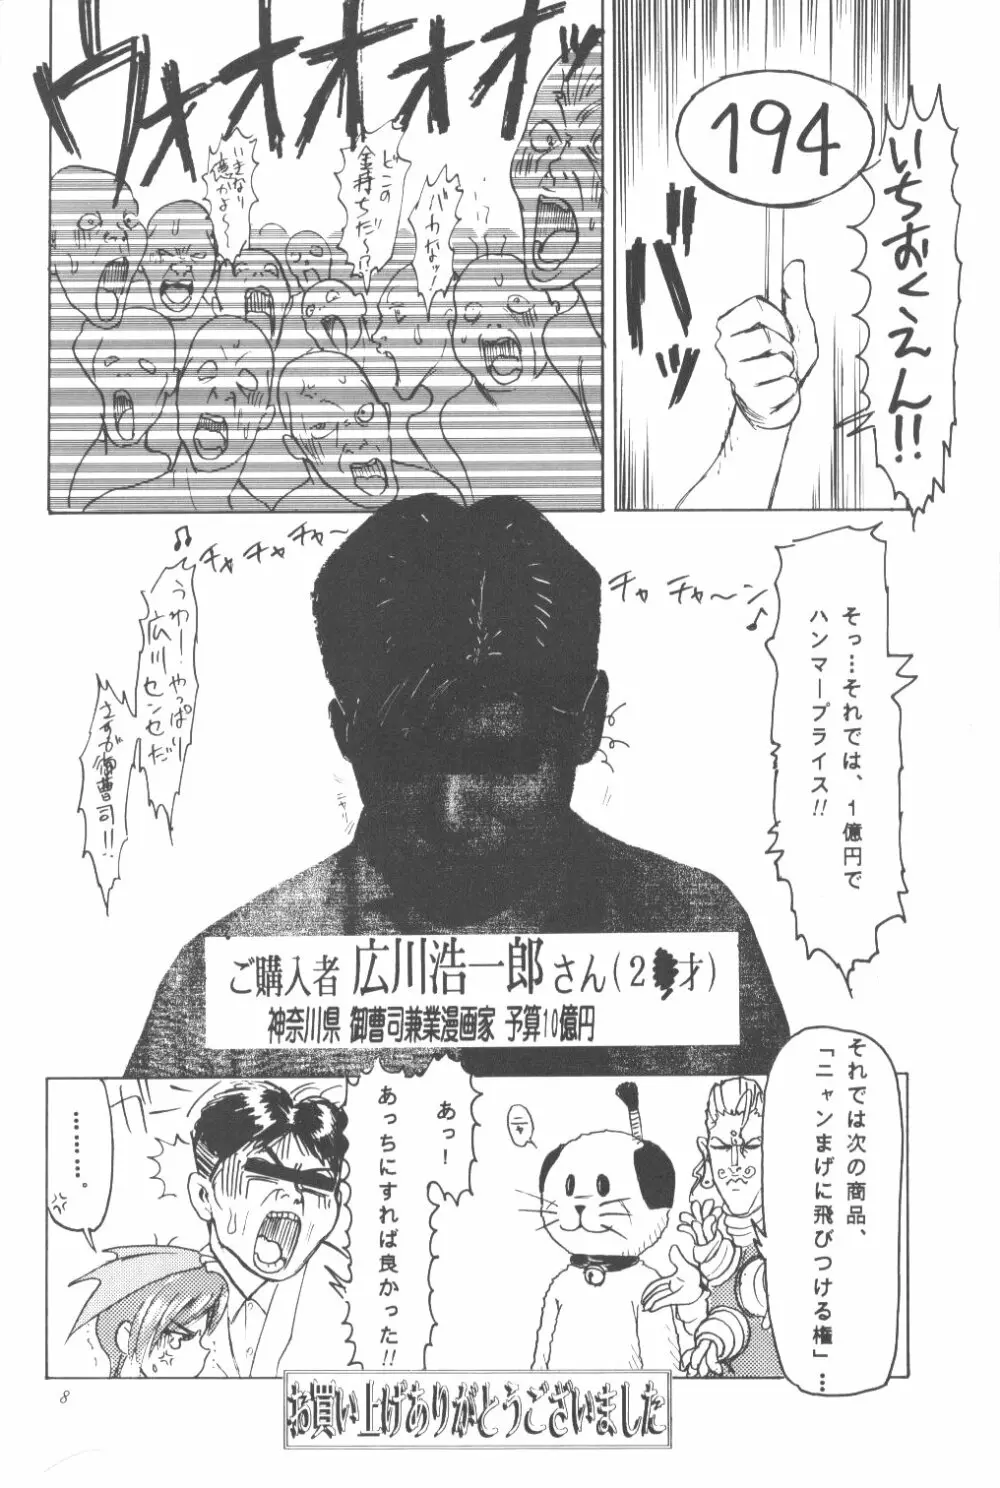 いちおくえん!!
194
バッ
バッ
ウォオオオオッ
バカなッ!
どこの
金持ちだ〜!?
いきなり
億かよ〜
そっ…それでは、1億円で
ハンマープライス!!
チャチャチャ〜
チャチャ〜ン♪
うわー!やっぱり
広川センセだ
さすが御曹司!!
ご購入者 広川浩一郎さん(2 才)
神奈川県 御曹司兼業漫画家 予算10億円
それでは次の商品、
「ニャンまげに飛びつける権」…
ニャ
あっ!
あっちにすれば良かった!!
………。
お買い上げありがとうございました
8